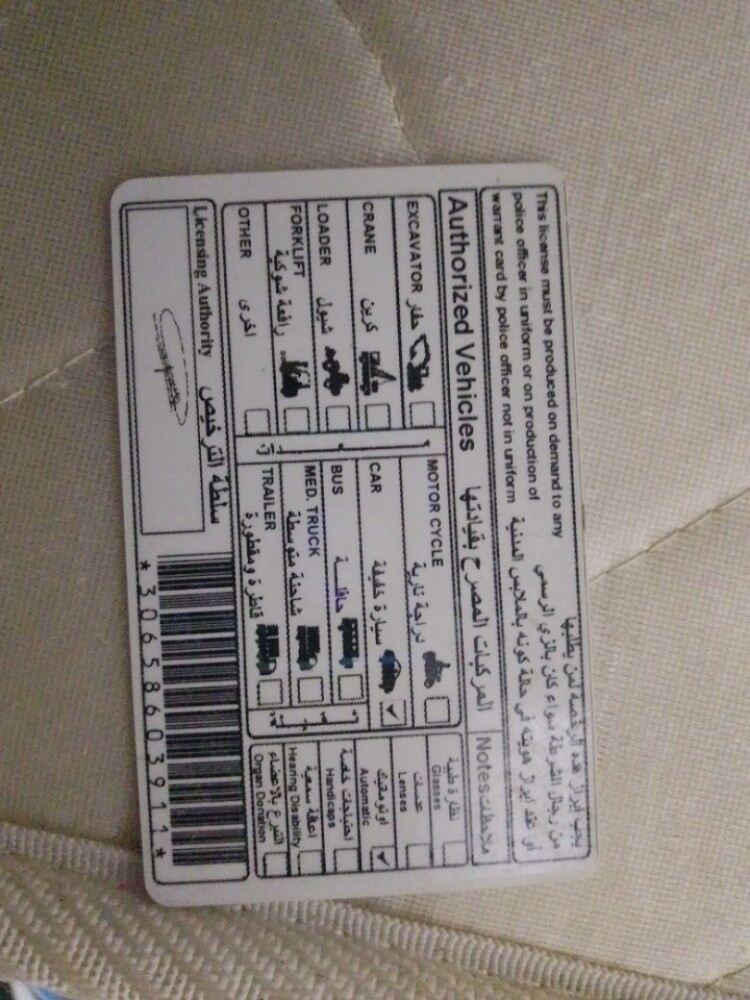 This license must be produced on demand to any
police officer in uniform or on production of
warrant card by police officer not in uniform
يجب ابراز هذه الرخصة لمن يطلبها
من رجال الشرطة سواء كان بالزي الرسمي
او عند ابراز هويته في حالة كونه بالملابس المدنية
Authorized Vehicles المركبات المصرح بقيادتها
Notes ملاحظات
EXCAVATOR حفار
CRANE كرين
LOADER شيول
FORKLIFT
رافعة شوكية
OTHER اخرى
MOTOR CYCLE
دراجة نارية
CAR سيارة خفيفة
BUS حافلة
MED. TRUCK
شاحنة متوسطة
TRAILER
قاطرة ومقطورة
نظارة طبية
Glasses
عدسات
Lenses
اوتوماتيك
Automatic
احتياجات خاصة
Handicaps
اعاقة سمعية
Hearing Disability
التبرع بالاعضاء
Organ Donation
Licensing Authority سلطة الترخيص
*30658603911*